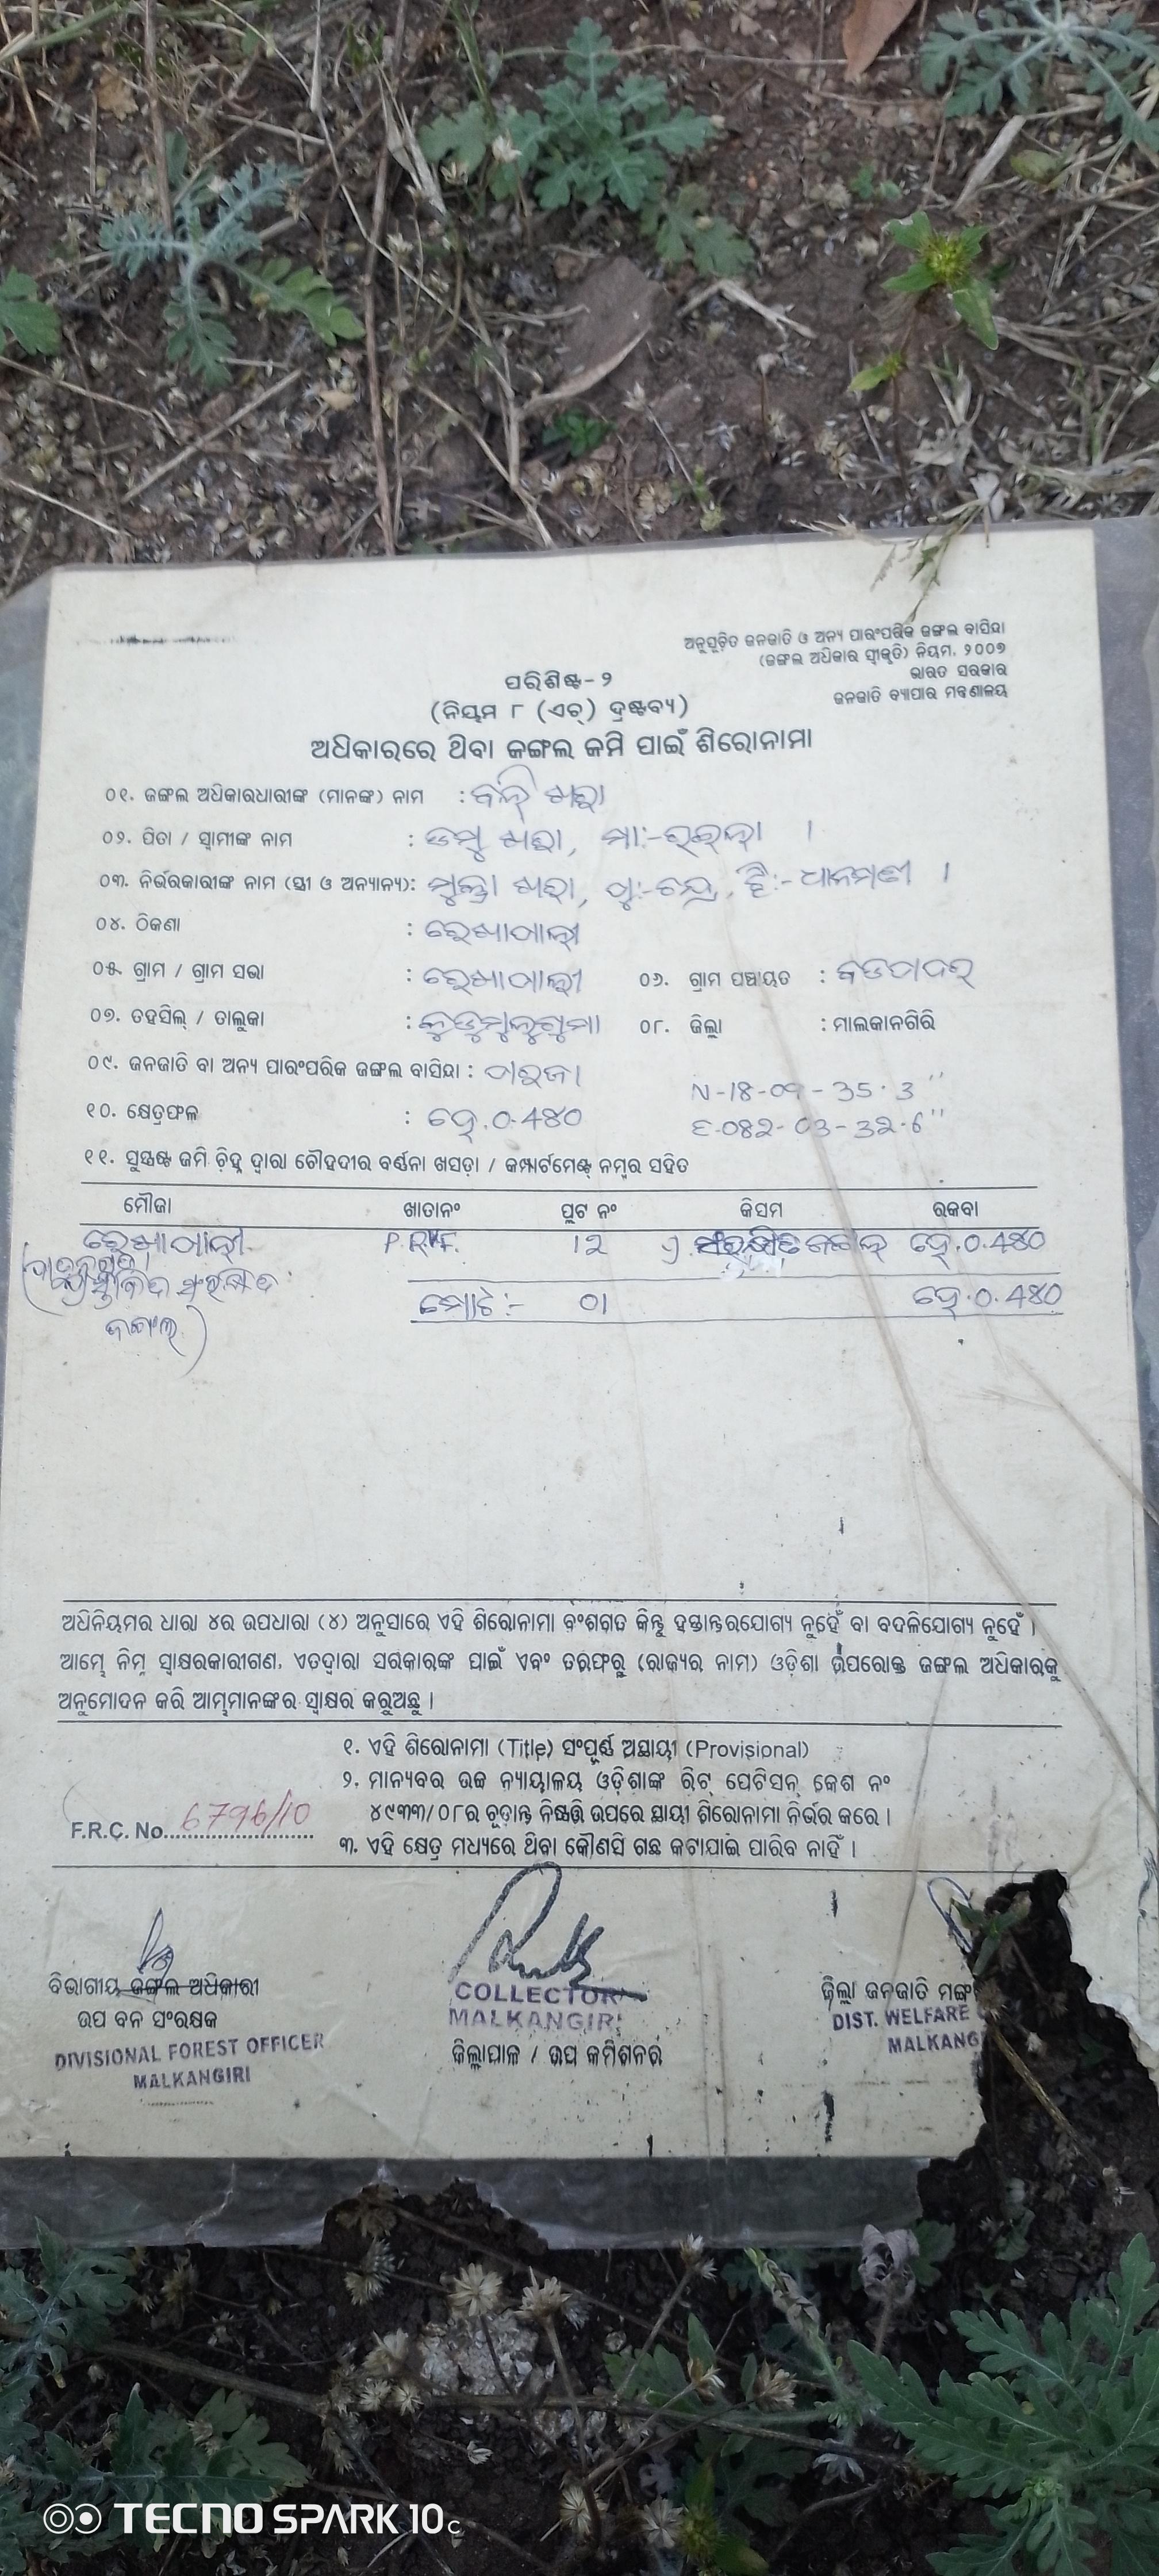 ଅନୁସୂଚିତ ଜନଜାତି ଓ ଅନ୍ୟ ପାରଂପରିକ ଜଙ୍ଗଲ ବାସିନ୍ଦା
(ଜଙ୍ଗଲ ଅଧିକାର ସ୍ୱୀକୃତି) ନିୟମ, ୨୦୦୭
ଭାରତ ସରକାର
ଜନଜାତି ବ୍ୟାପାର ମନ୍ତ୍ରଣାଳୟ
ପରିଶିଷ୍ଟ- ୨
(ନିୟମ ୮ (ଏଚ୍) ଦ୍ରଷ୍ଟବ୍ୟ)
ଅଧିକାରରେ ଥିବା ଜଙ୍ଗଲ ଜମି ପାଇଁ ଶିରୋନାମା
୦୧. ଜଙ୍ଗଲ ଅଧିକାରଧାରୀଙ୍କ (ମାନଙ୍କ) ନାମ :
୦୨. ପିତା / ସ୍ୱାମୀଙ୍କ ନାମ :
୦୩. ନିର୍ଭରକାରୀଙ୍କ ନାମ (ସ୍ତ୍ରୀ ଓ ଅନ୍ୟାନ୍ୟ): ଧାନମଣୀ ।
୦୪. ଠିକଣା :
୦୫. ଗ୍ରାମ / ଗ୍ରାମ ସଭା : ୦୬. ଗ୍ରାମ ପଞ୍ଚାୟତ : ବଡପଦର
୦୭. ତହସିଲ୍ / ତାଲୁକା : କୁଡୁମୁଲୁଗୁମା ୦୮. ଜିଲ୍ଲା : ମାଲକାନଗିରି
୦୯. ଜନଜାତି ବା ଅନ୍ୟ ପାରଂପରିକ ଜଙ୍ଗଲ ବାସିନ୍ଦା : ପରଜା
N-18-09-35.3"
୧୦. କ୍ଷେତ୍ରଫଳ : ହେ.0.480
E-082-03-32.6"
୧୧. ସୁସ୍ପଷ୍ଟ ଜମି ଚିହ୍ନ ଦ୍ୱାରା ଚୌହଦୀର ବର୍ଣ୍ଣନା ଖସଡ଼ା / କମ୍ପାର୍ଟମେଣ୍ଟ୍ ନମ୍ବର ସହିତ
ମୌଜା ଖାତାନଂ ପ୍ଲଟ ନଂ କିସମ ରକବା
12 ହେ.0.480
ମୋଟ:- 01 ହେ.0.480
ଅଧିନିୟମର ଧାରା ୪ର ଉପଧାରା (୪) ଅନୁସାରେ ଏହି ଶିରୋନାମା ବଂଶଗତ କିନ୍ତୁ ହସ୍ତାନ୍ତରଯୋଗ୍ୟ ନୁହେଁ ବା ବଦଳିଯୋଗ୍ୟ ନୁହେଁ ।
ଆମ୍ଭେ ନିମ୍ନ ସ୍ୱାକ୍ଷରକାରୀଗଣ, ଏତଦ୍ୱାରା ସରକାରଙ୍କ ପାଇଁ ଏବଂ ତରଫରୁ (ରାଜ୍ୟର ନାମ) ଓଡ଼ିଶା ଉପରୋକ୍ତ ଜଙ୍ଗଲ ଅଧିକାରକୁ
ଅନୁମୋଦନ କରି ଆମ୍ଭମାନଙ୍କର ସ୍ୱାକ୍ଷର କରୁଅଛୁ ।
୧. ଏହି ଶିରୋନାମା (Title) ସଂପୂର୍ଣ୍ଣ ଅସ୍ଥାୟୀ (Provisional)
୨. ମାନ୍ୟବର ଉଚ୍ଚ ନ୍ୟାୟାଳୟ ଓଡ଼ିଶାଙ୍କ ରିଟ୍ ପେଟିସନ୍ କେଶ ନଂ
୪୯୩୩/୦୮ର ଚୂଡ଼ାନ୍ତ ନିଷ୍ପତ୍ତି ଉପରେ ସ୍ଥାୟୀ ଶିରୋନାମା ନିର୍ଭର କରେ ।
F.R.C. No. 6796/10
୩. ଏହି କ୍ଷେତ୍ର ମଧ୍ୟରେ ଥିବା କୌଣସି ଗଛ କଟାଯାଇ ପାରିବ ନାହିଁ ।
ବିଭାଗୀୟ ଜଙ୍ଗଲ ଅଧିକାରୀ
ଉପ ବନ ସଂରକ୍ଷକ
DIVISIONAL FOREST OFFICER
MALKANGIRI
COLLECTOR
MALKANGIRI
ଜିଲ୍ଲାପାଳ / ଉପ କମିଶନର
ଜିଲ୍ଲା ଜନଜାତି ମଙ୍ଗ
DIST. WELFARE
MALKANG
TECNO SPARK 10C